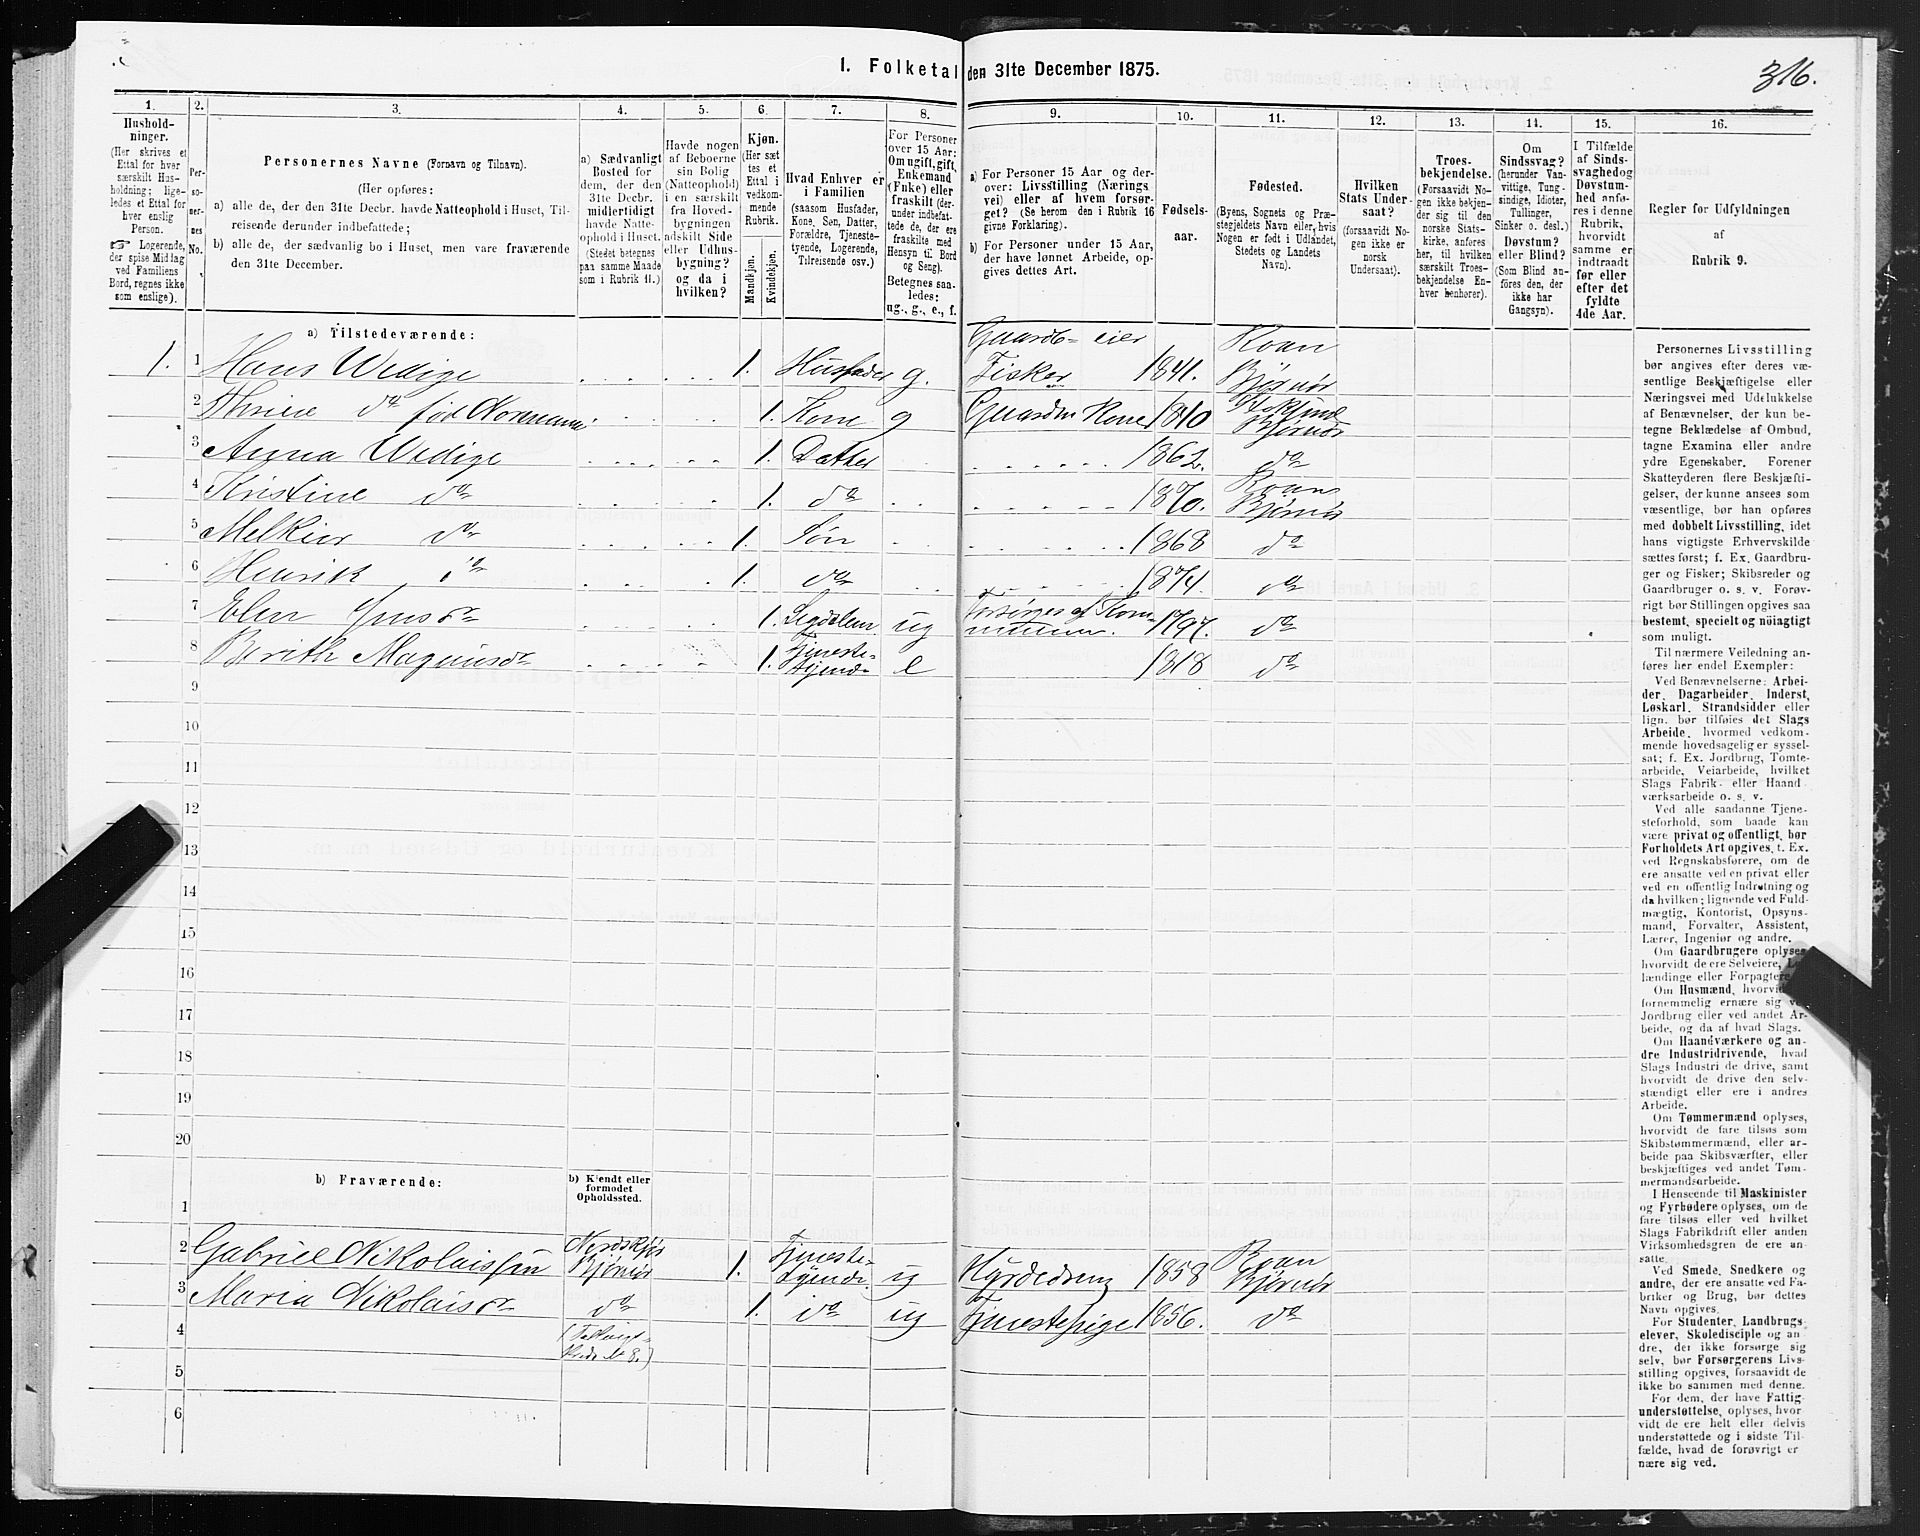 I. Folketal den 31te December 1875.
316.
1.
2.
3.
4.
5.
6.
7.
8.
9.
10.
11.
12.
13.
14.
15.
16.
Hushold-
ninger.
(Her skrives et
Ettal for hver
særskilt Hus-
holdning; lige-
ledes et Ettal for
hver enslig
Person.
☞ Logerende,
der spise Middag
ved Familiens
Bord, regnes ikke
som enslige).
Per-
so-
ner-
nes
No.
Personernes Navne (Fornavn og Tilnavn).
(Her opføres:
a) alle de, der den 31te Decbr. havde Natteophold i Huset, Til-
reisende derunder indbefattede;
b) alle de, der sædvanlig bo i Huset, men vare fraværende
den 31te December.
a) Sædvanligt
Bosted for
dem, der den
31te Decbr.
midlertidigt
havde Natte-
ophold i Huset.
(Stedet betegnes
paa samme Maade
som i Rubrik 11.)
Havde nogen
af Beboerne
sin Bolig
(Natteophold)
i en særskilt
fra Hoved-
bygningen
adskilt Side
eller Udhus-
bygning?
og da i
hvilken?
Kjøn.
(Her sæt
es et
Ettal i
vedkom-
mende
Rubrik.
Mandkjøn.
Kvindekjøn.
Hvad Enhver er
i Familien
(saasom Husfader,
Kone, Søn, Datter,
Forældre, Tjeneste-
tyende, Logerende,
Tilreisende osv.)
For Personer
over 15 Aar:
Om ugift, gift,
Enkemand
(Enke) eller
fraskilt (der-
under indbefat-
tede de, der ere
fraskilte med
Hensyn til Bord
og Seng).
Betegnes saa-
ledes:
ug., g., e., f.
a) For Personer 15 Aar og der-
over: Livsstilling (Nærings
vei) eller af hvem forsør-
get? (Se herom den i Rubrik 16
givne Forklaring).
b) For Personer under 15 Aar,
der have lønnet Arbeide, op-
gives dettes Art.
Fødsels-
aar.
Fødested.
(Byens, Sognets og Præ-
stegjeldets Navn eller, hvis
Nogen er født i Udlandet,
Stedets og Landets
Navn).
Hvilken
Stats Under-
saat?
(forsaavidt No-
gen ikke er
norsk
Undersaat).
Troes-
bekjendelse.
(Forsaavidt No-
gen ikke bekjen-
der sig til den
norske Stats-
kirke, anføres
her, til hvilken
særskilt Troes-
bekjendelse En-
hver henhører).
Om
Sindssvag?
(herunder Van-
vittige, Tung-
sindige, Idioter,
Tullinger,
Sinker o. desl.)
Døvstum?
eller Blind?
(Som Blind an-
føres den, der
ikke har
Gangsyn).
I Tilfælde
af Sinds-
svaghed og
Døvstum-
hed anfø-
res i denne
Rubrik,
hvorvidt
samme er
indtraadt
før eller
efter det
fyldte
4de Aar.
Regler for Udfyldningen
af
Rubrik 9.
a) Tilstedeværende:
1. 1 Hans Wedige 1. Husfader g. Gaardb-eier Fisker 1841. Roan Bjørnør
2 do født 1. Kone g Kone 1840 Bjørnør
3 Anna Wedige 1. Datter 1862. do
4 Kristine do 1. do 1870. Roan Bjørnør
5 Melkior do 1. Søn 1868 do
6 Henrik do 1. do 1874. do
7 Elen 1. ug Forsørges af Kom-munen. 1797. do
8 Berith Magnusdr 1. Tjeneste-tyende e 1818 do
9
10
11
12
13
14
15
16
17
18
19
20
b) Fraværende:
b) Kjendt eller
formodet
Opholdssted.
1
2 Gabriel Nikolaissen Bjørnør 1. Tjeneste-tyende ug Hyrdedreng 1858 Roan Bjørnør
3 Maria Nikolaisdr do 1. do ug Tjenestepige 1856. do
4
5
6
Personernes Livsstilling
bør angives efter deres væ-
sentlige Beskjæftigelse eller
Næringsvei med Udelukkelse
af Benævnelser, der kun be-
tegne Beklædelse af Ombud,
tagne Examina eller andre
ydre Egenskaber. Forener
Skatteyderen flere Beskjæfti-
gelser, der kunne ansees som
væsentlige, bør han opføres
med dobbelt Livsstilling, idet
hans vigtigste Erhvervskilde
sættes først; f. Ex. Gaardbru-
ger og Fisker; Skibsreder og
Gaardbruger o. s. v. Forøv-
rigt bør Stillingen opgives saa
bestemt, specielt og nøiagtigt
som muligt.
Til nærmere Veiledning an-
føres her endel Exempler:
Ved Benævnelserne: Arbei-
der, Dagarbeider, Inderst,
Løskarl, Strandsidder eller
lign. bør tilføies det Slags
Arbeide, hvormed vedkom-
mende hovedsagelig er syssel-
sat; f. Ex. Jordbrug, Tomte-
arbeide, Veiarbeide, hvilket
Slags Fabrik- eller Haand
værksarbeide o. s. v.
Ved alle saadanne Tjene-
steforhold, som baade kan
være privat og offentligt, bør
Forholdets Art opgives, t. Ex.
ved Regnskabsførere, om de
ere ansatte ved en privat eller
ved en offentlig Indretning og
da hvilken; lignende ved Fuld-
mægtig, Kontorist, Opsyns-
mand, Forvalter, Assistent,
Lærer, Ingeniør og andre.
Om Gaardbrugere oplyses,
hvorvidt de ere Selveiere,
lændinge eller Forpagtere.
Om Husmænd, hvorvidt
fornemmelig ernære sig ved
Jordbrug eller ved andet Ar-
beide, og da af hvad Slags.
Om Haandværkere og an-
dre Industridrivende, hvad
Slags Industri de drive, samt
hvorvidt de drive den selv-
stændigt eller ere i andres
Arbeide.
Om Tømmermænd oplyses,
hvorvidt de fare tilsøs som
Skibstømmermænd, eller ar-
beide paa Skibsværfter, eller
beskjæftiges ved andet Tøm-
mermandsarbeide.
I Henseende til Maskinister
og Fyrbødere oplyses, om de
fare tilsøs eller ved hvilket
Slags Fabrikdrift eller anden
Virksomhedsgren de ere an-
satte.
Ved Smede, Snedkere og
andre, der ere ansatte ved Fa-
briker og Brug, bør dettes
Navn opgives.
For Studenter, Landbrugs
elever, Skoledisciple og an-
dre, der ikke forsørge sig
selv, bør Forsørgerens Livs-
stilling opgives, forsaavidt de
ikke bo sammen med denne.
For dem, der have Fattig-
understøttelse, oplyses, hvor
vidt de ere helt eller delvis
understøttede og i sidste Til-
fælde, hvad de forøvrigt er
nære sig ved.